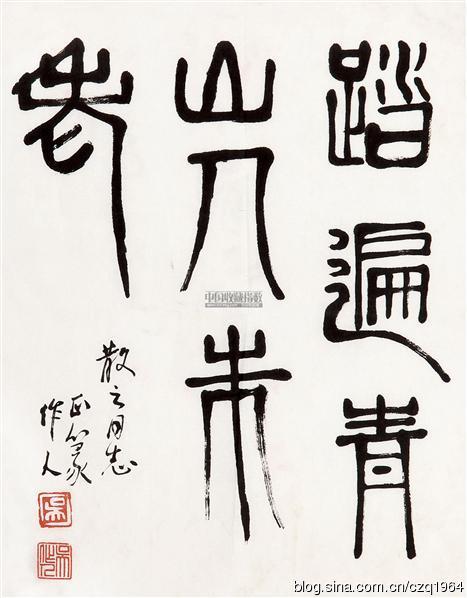 踏遍青
山人未
老
散之同志
正篆
作人
中国收藏指数
blog.sina.com.cn/czq1964